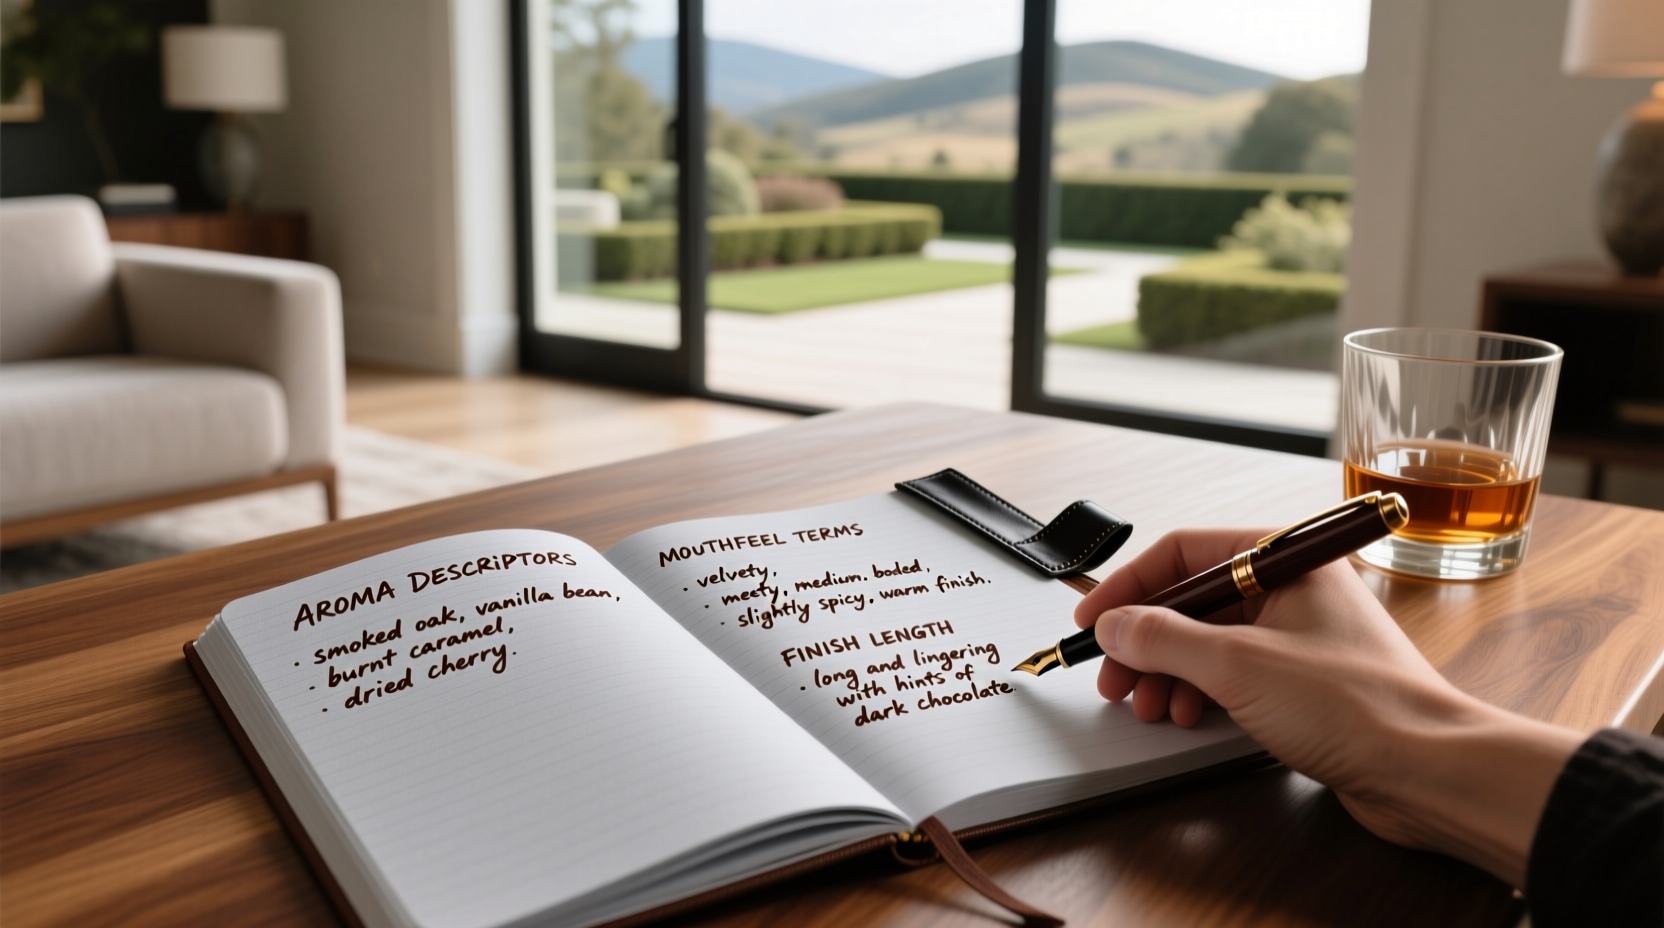 AROMA DESCRIPTORS
· smoked oak, vanilla bean,
· burnt caramel,
· dried cherry.
MOUTHFEEL TERMS
· velvety,
· meety, medium. boded,
· slightly spicy, warm finish.
FINISH LENGTH
· long and lingering
with hints of
dark chocolate.